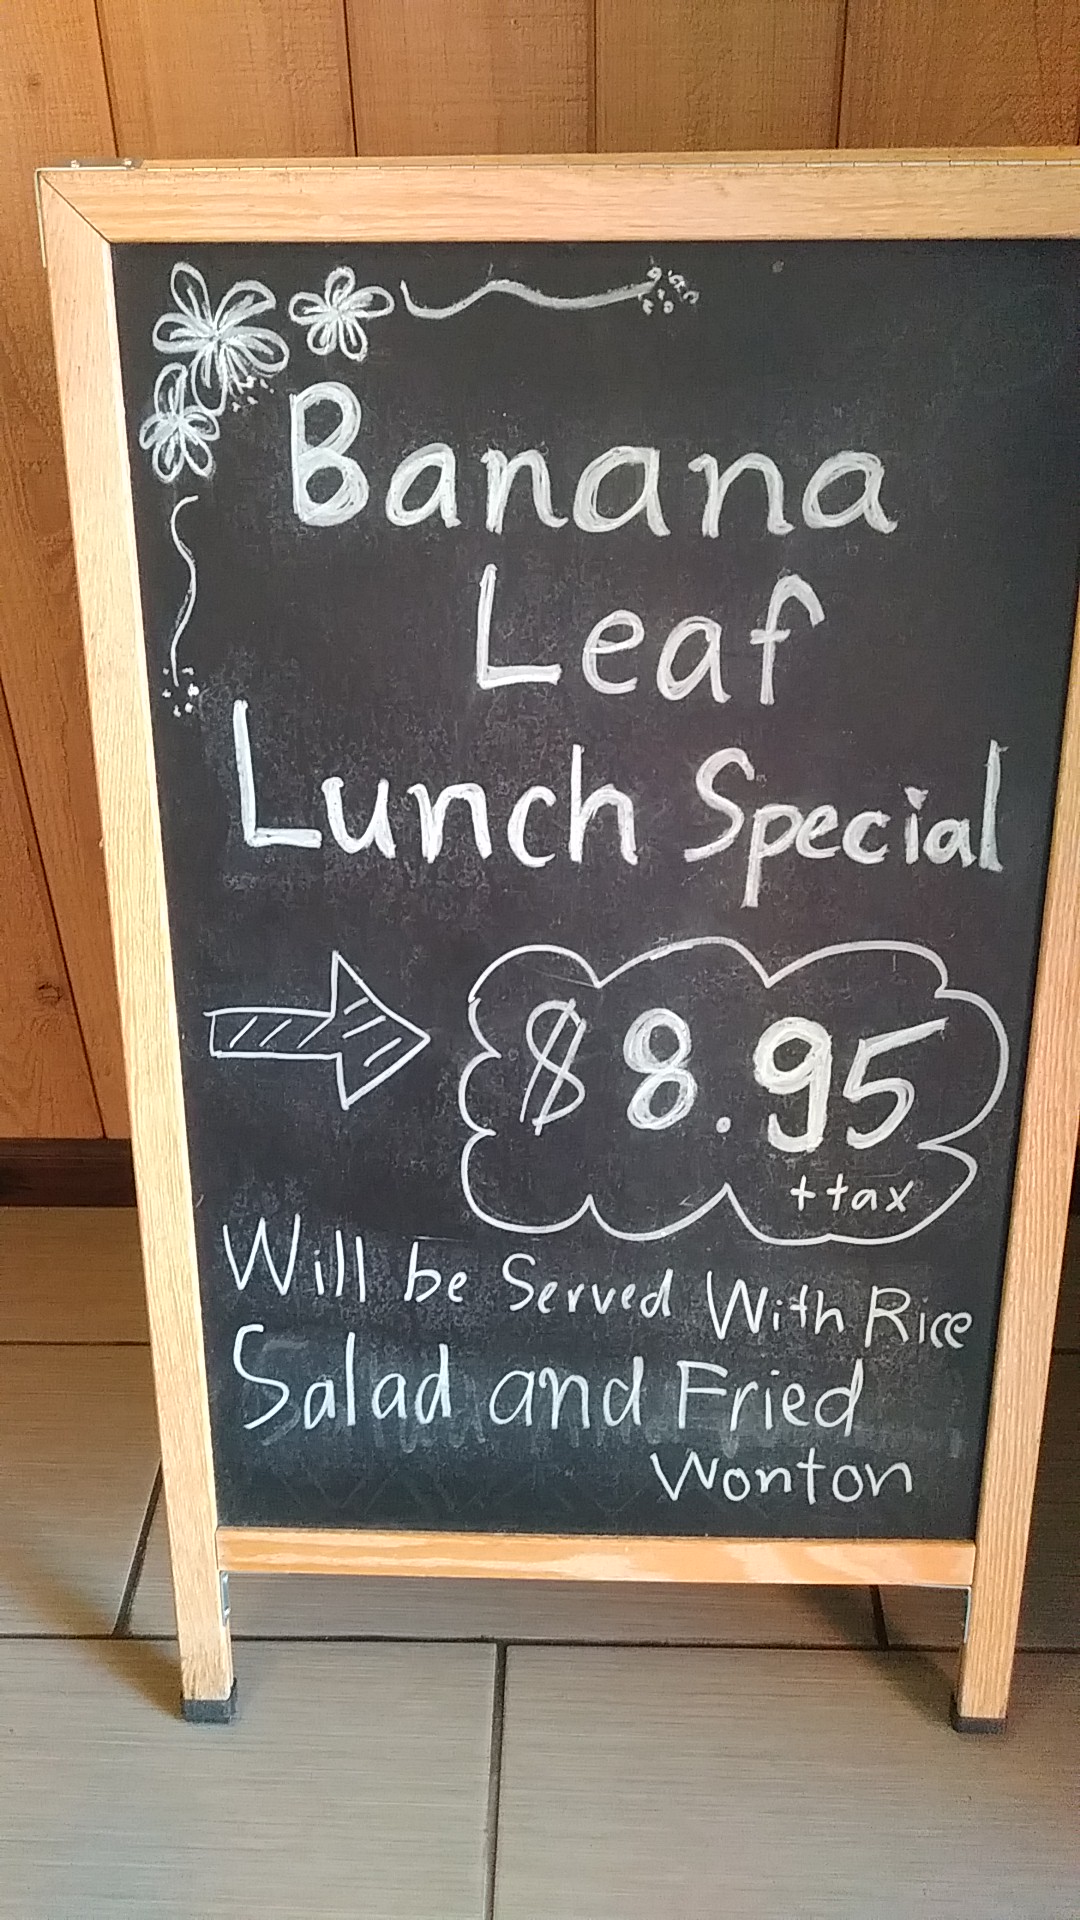 Banana
Leaf
Lunch Special
$8.95
+tax
Will be Served With Rice
Salad and Fried
Wonton